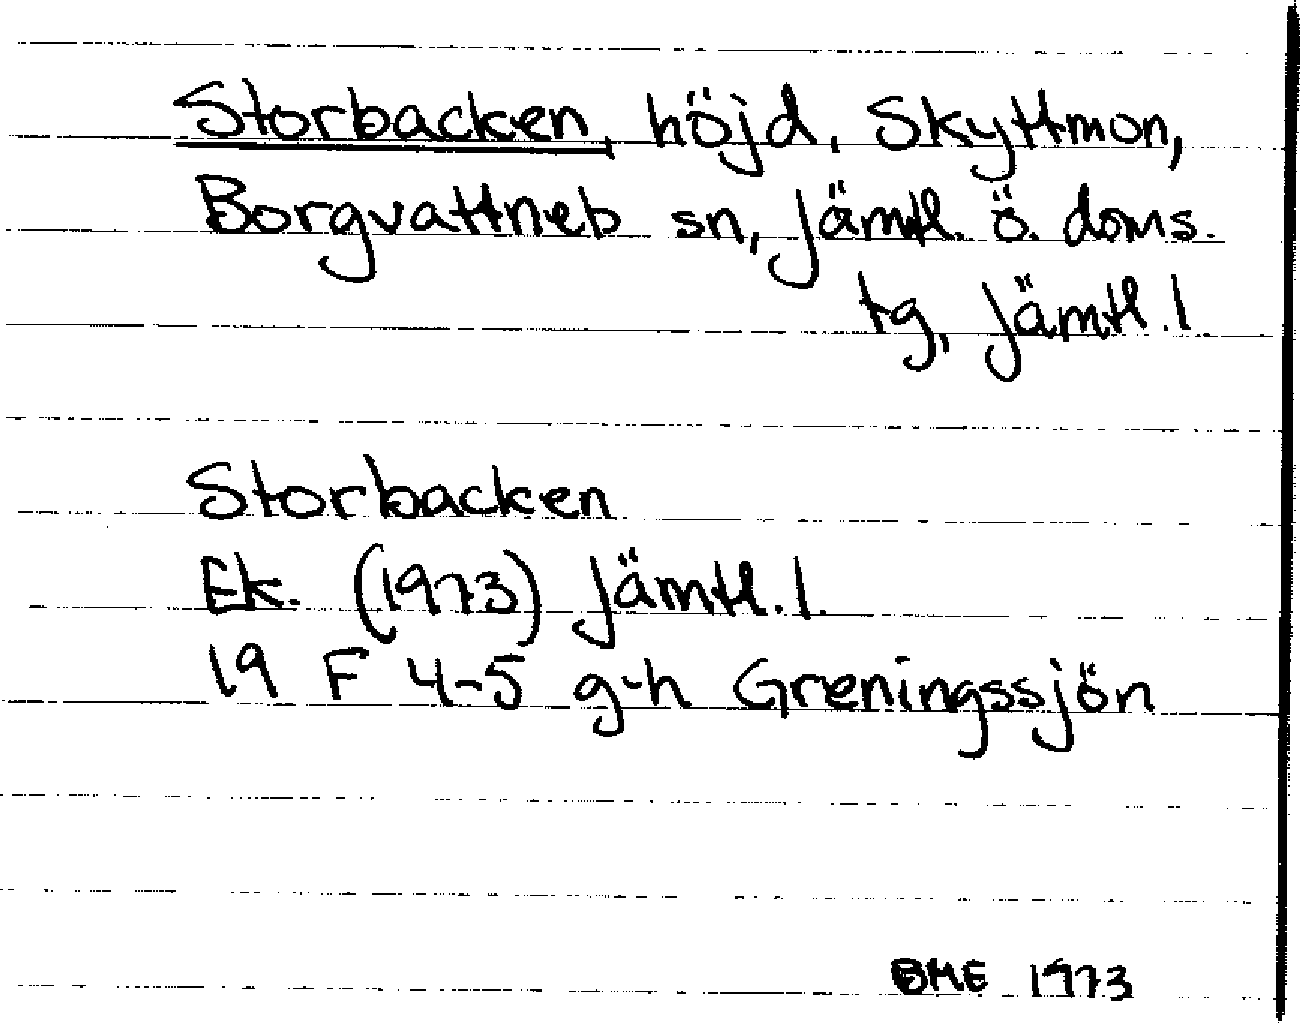 Storbacken, höjd, Skyttmon,
Borgvattneb sn, Jämtl. ö. doms.
tg, Jämtl. l.
Storbacken
Ek. (1973) Jämtl. l.
19 F 4-5 g-h Greningssjön
BME 1973